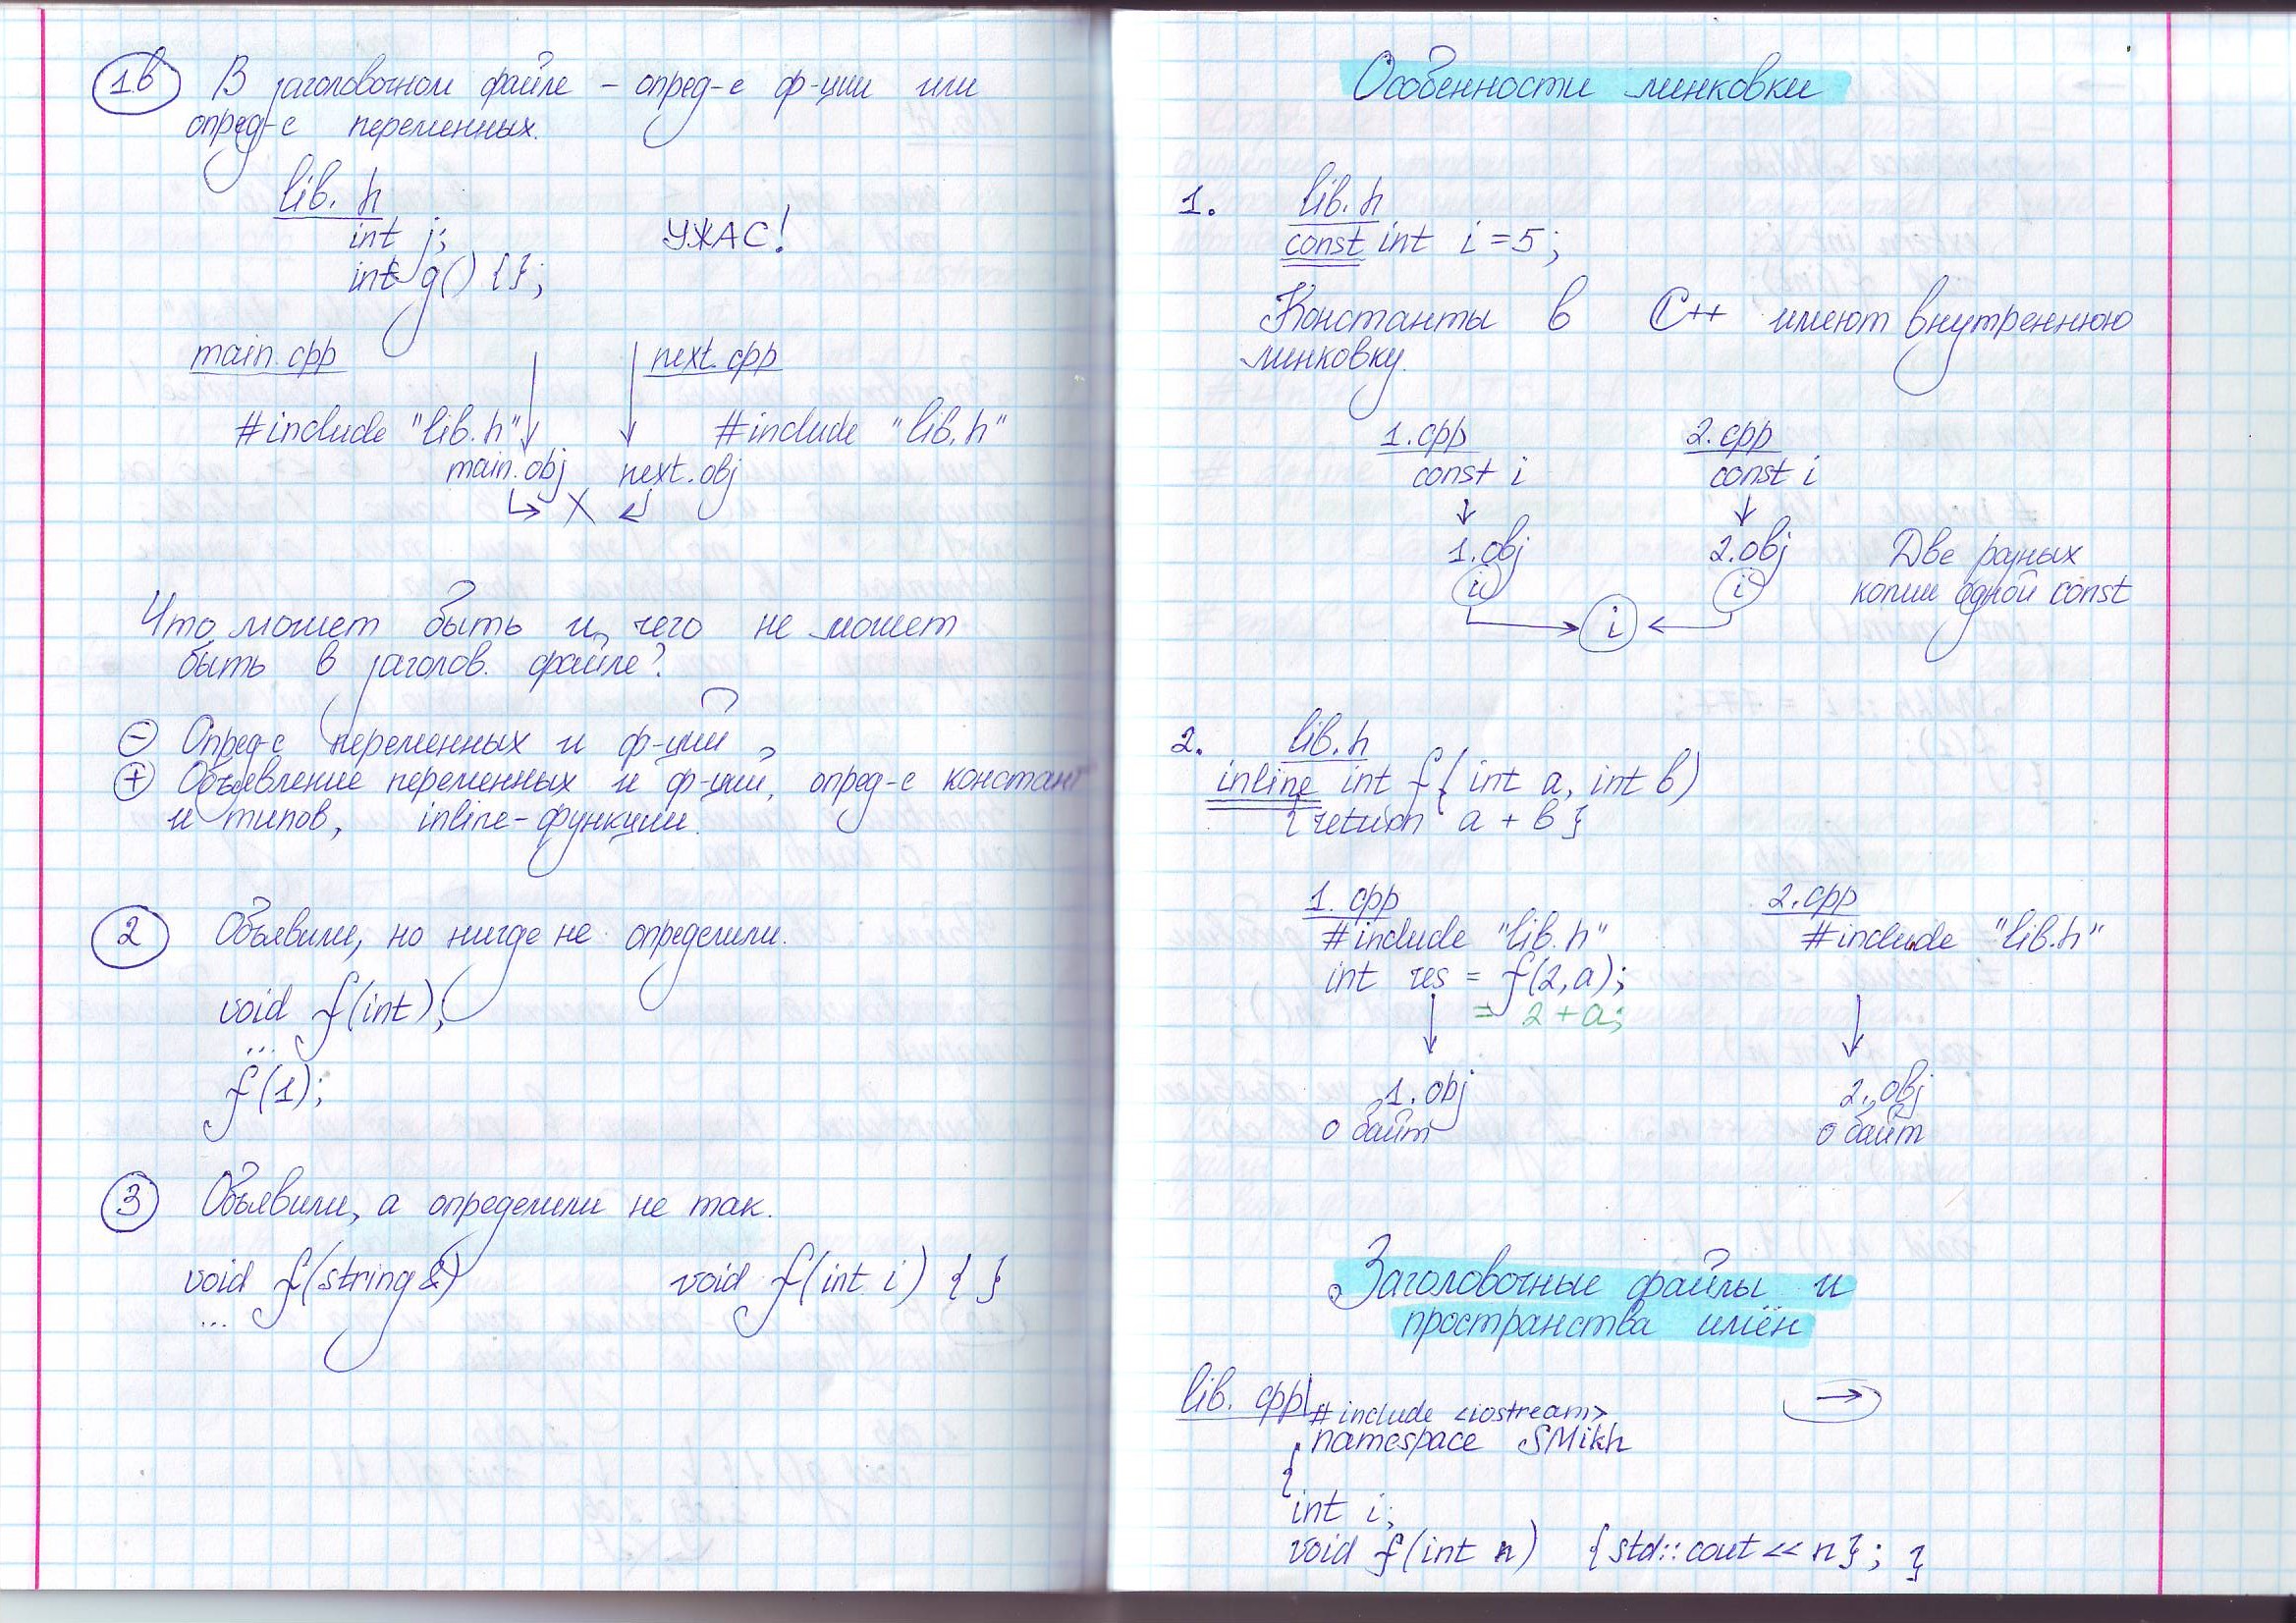 1в В заголовочном файле – опред-е ф-ции или
опред-е переменных.
lib.h
int j;
УЖАС!
int g() {};
main.cpp
next.cpp
#include "lib.h"
#include "lib.h"
main.obj next.obj
X
Что может быть и чего не может
быть в заголов. файле?
⊖ Опред-е переменных и ф-ций
⊕ Объявление переменных и ф-ций, опред-е констант
и типов, inline-функции.
2 Объявили, но нигде не определили.
void f(int);
...
f(1);
3 Объявили, а определили не так.
void f(string&) void f(int i) { }
...
Особенности линковки
1. lib.h
const int i = 5;
Константы в C++ имеют внутреннюю
линковку.
1.cpp 2.cpp
const i const i
1.obj 2.obj Две разных
i i копии одной const
i
2. lib.h
inline int f( int a, int b)
{return a + b}
1. cpp 2.cpp
#include "lib.h" #include "lib.h"
int res = f(2,a);
= 2 + a;
1.obj 2.obj
0 байт 0 байт
Заголовочные файлы и
пространства имён
lib. cpp
→
#include <iostream>
namespace SMikh
{
int i;
void f(int n) {std::cout << n}; }